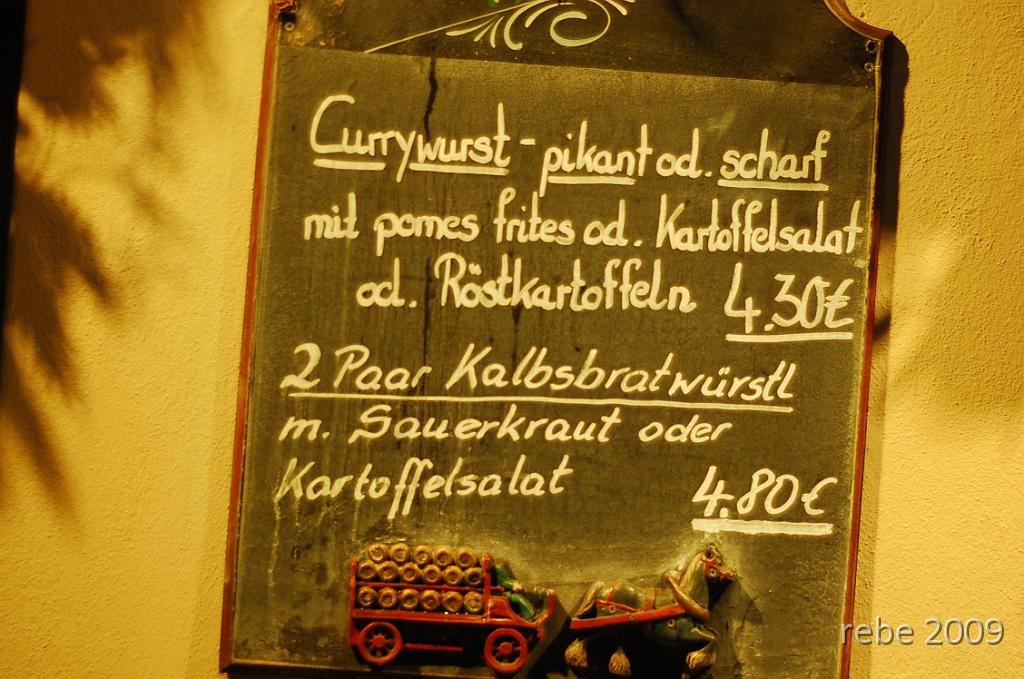 Currywurst - pikant od. scharf
mit pomes frites od. Kartoffelsalat
od. Röstkartoffeln 4.30€
2 Paar Kalbsbratwürstl
m. Sauerkraut oder
Kartoffelsalat 4.80€
rebe 2009